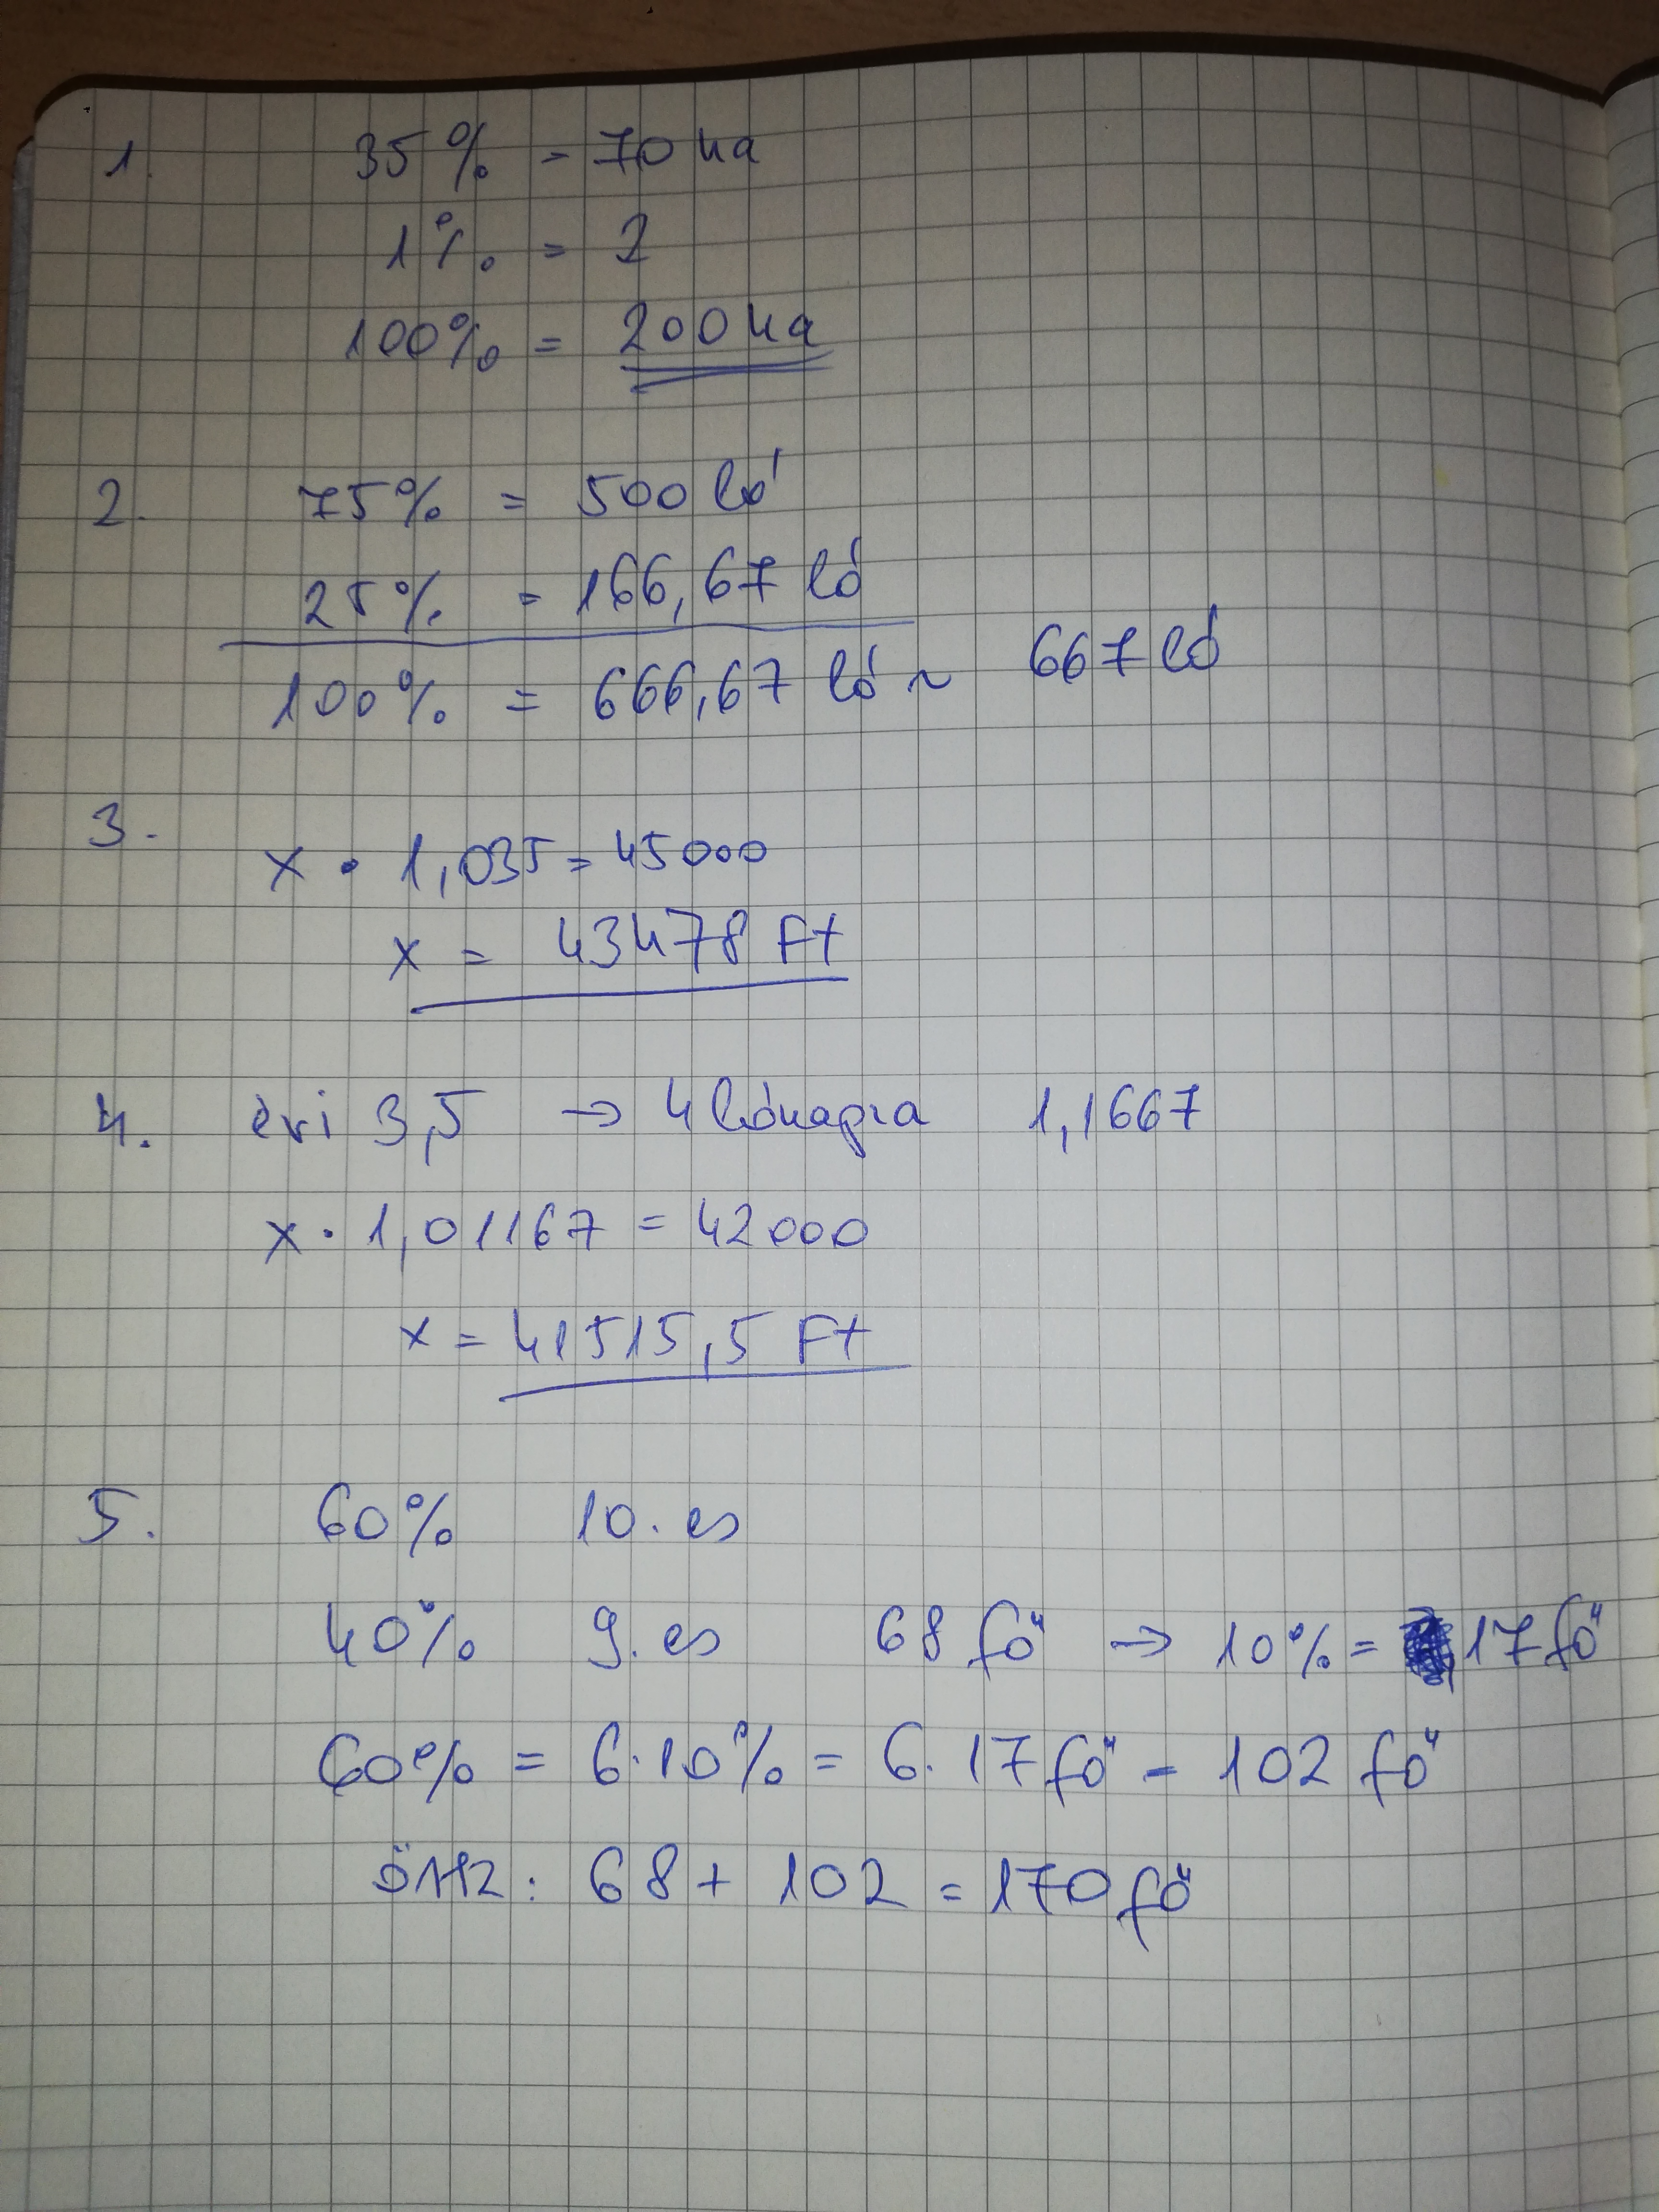 1. 35% = 70 ha
1% = 2
100% = 200 ha
2. 75% = 500 ló
25% = 166,67 ló
100% = 666,67 ló ~ 667 ló
3.
x · 1,035 = 45000
x = 43478 Ft
4. évi 3,5 → 4 hónapra 1,1667
x · 1,01167 = 42000
x = 41515,5 Ft
5. 60% 10. es
40% 9. es 68 fő → 10% = 17 fő
60% = 6·10% = 6·17 fő = 102 fő
68 + 102 = 170 fő